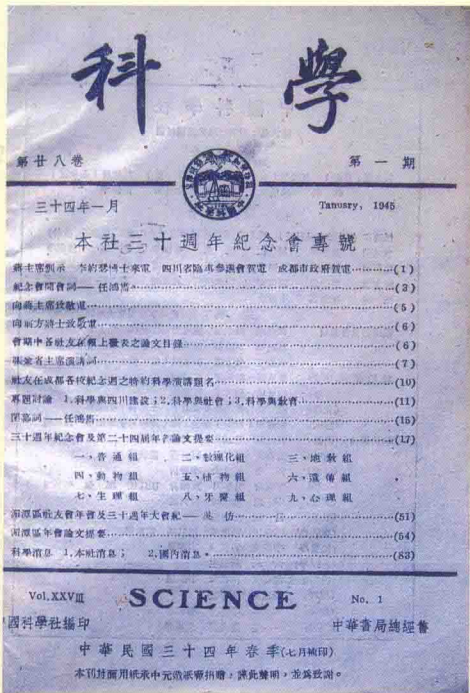 科學
第廿八卷 第一期
三十四年一月 Tanusry, 1945
本社三十週年紀念會專號
蔣主席訓示 李約瑟博士來電 四川省臨時參議會賀電 成都市政府賀電 (1)
紀念會開會詞——任鴻雋 (3)
向蔣主席致敬電 (5)
向前方將士致敬電 (6)
會期中各社友在報上發表之論文目錄 (6)
張業省主席演講詞 (7)
社友在成都各校紀念週之特約科學演講題名 (10)
專題討論 1.科學與四川建設;2.科學與社會;3.科學與教育 (11)
閉幕詞——任鴻雋 (15)
三十週年紀念會及第二十四屆年會論文提要 (17)
一、普通組 二、數理化組 三、地教組
四、動物組 五、植物組 六、遺傳組
七、生理組 八、牙醫組 九、心理組
湄潭區社友會年會及三十週年大會紀—— (51)
湄潭區年會論文提要 (54)
科學消息 1.本社消息; 2.國內消息。 (83)
Vol.XXVIII SCIENCE No. 1
國科學社編印 中華書局總經售
中華民國三十四年春季(七月補印)
本刊封面用紙承中元造紙廠捐贈,謹此聲明,並為致謝。